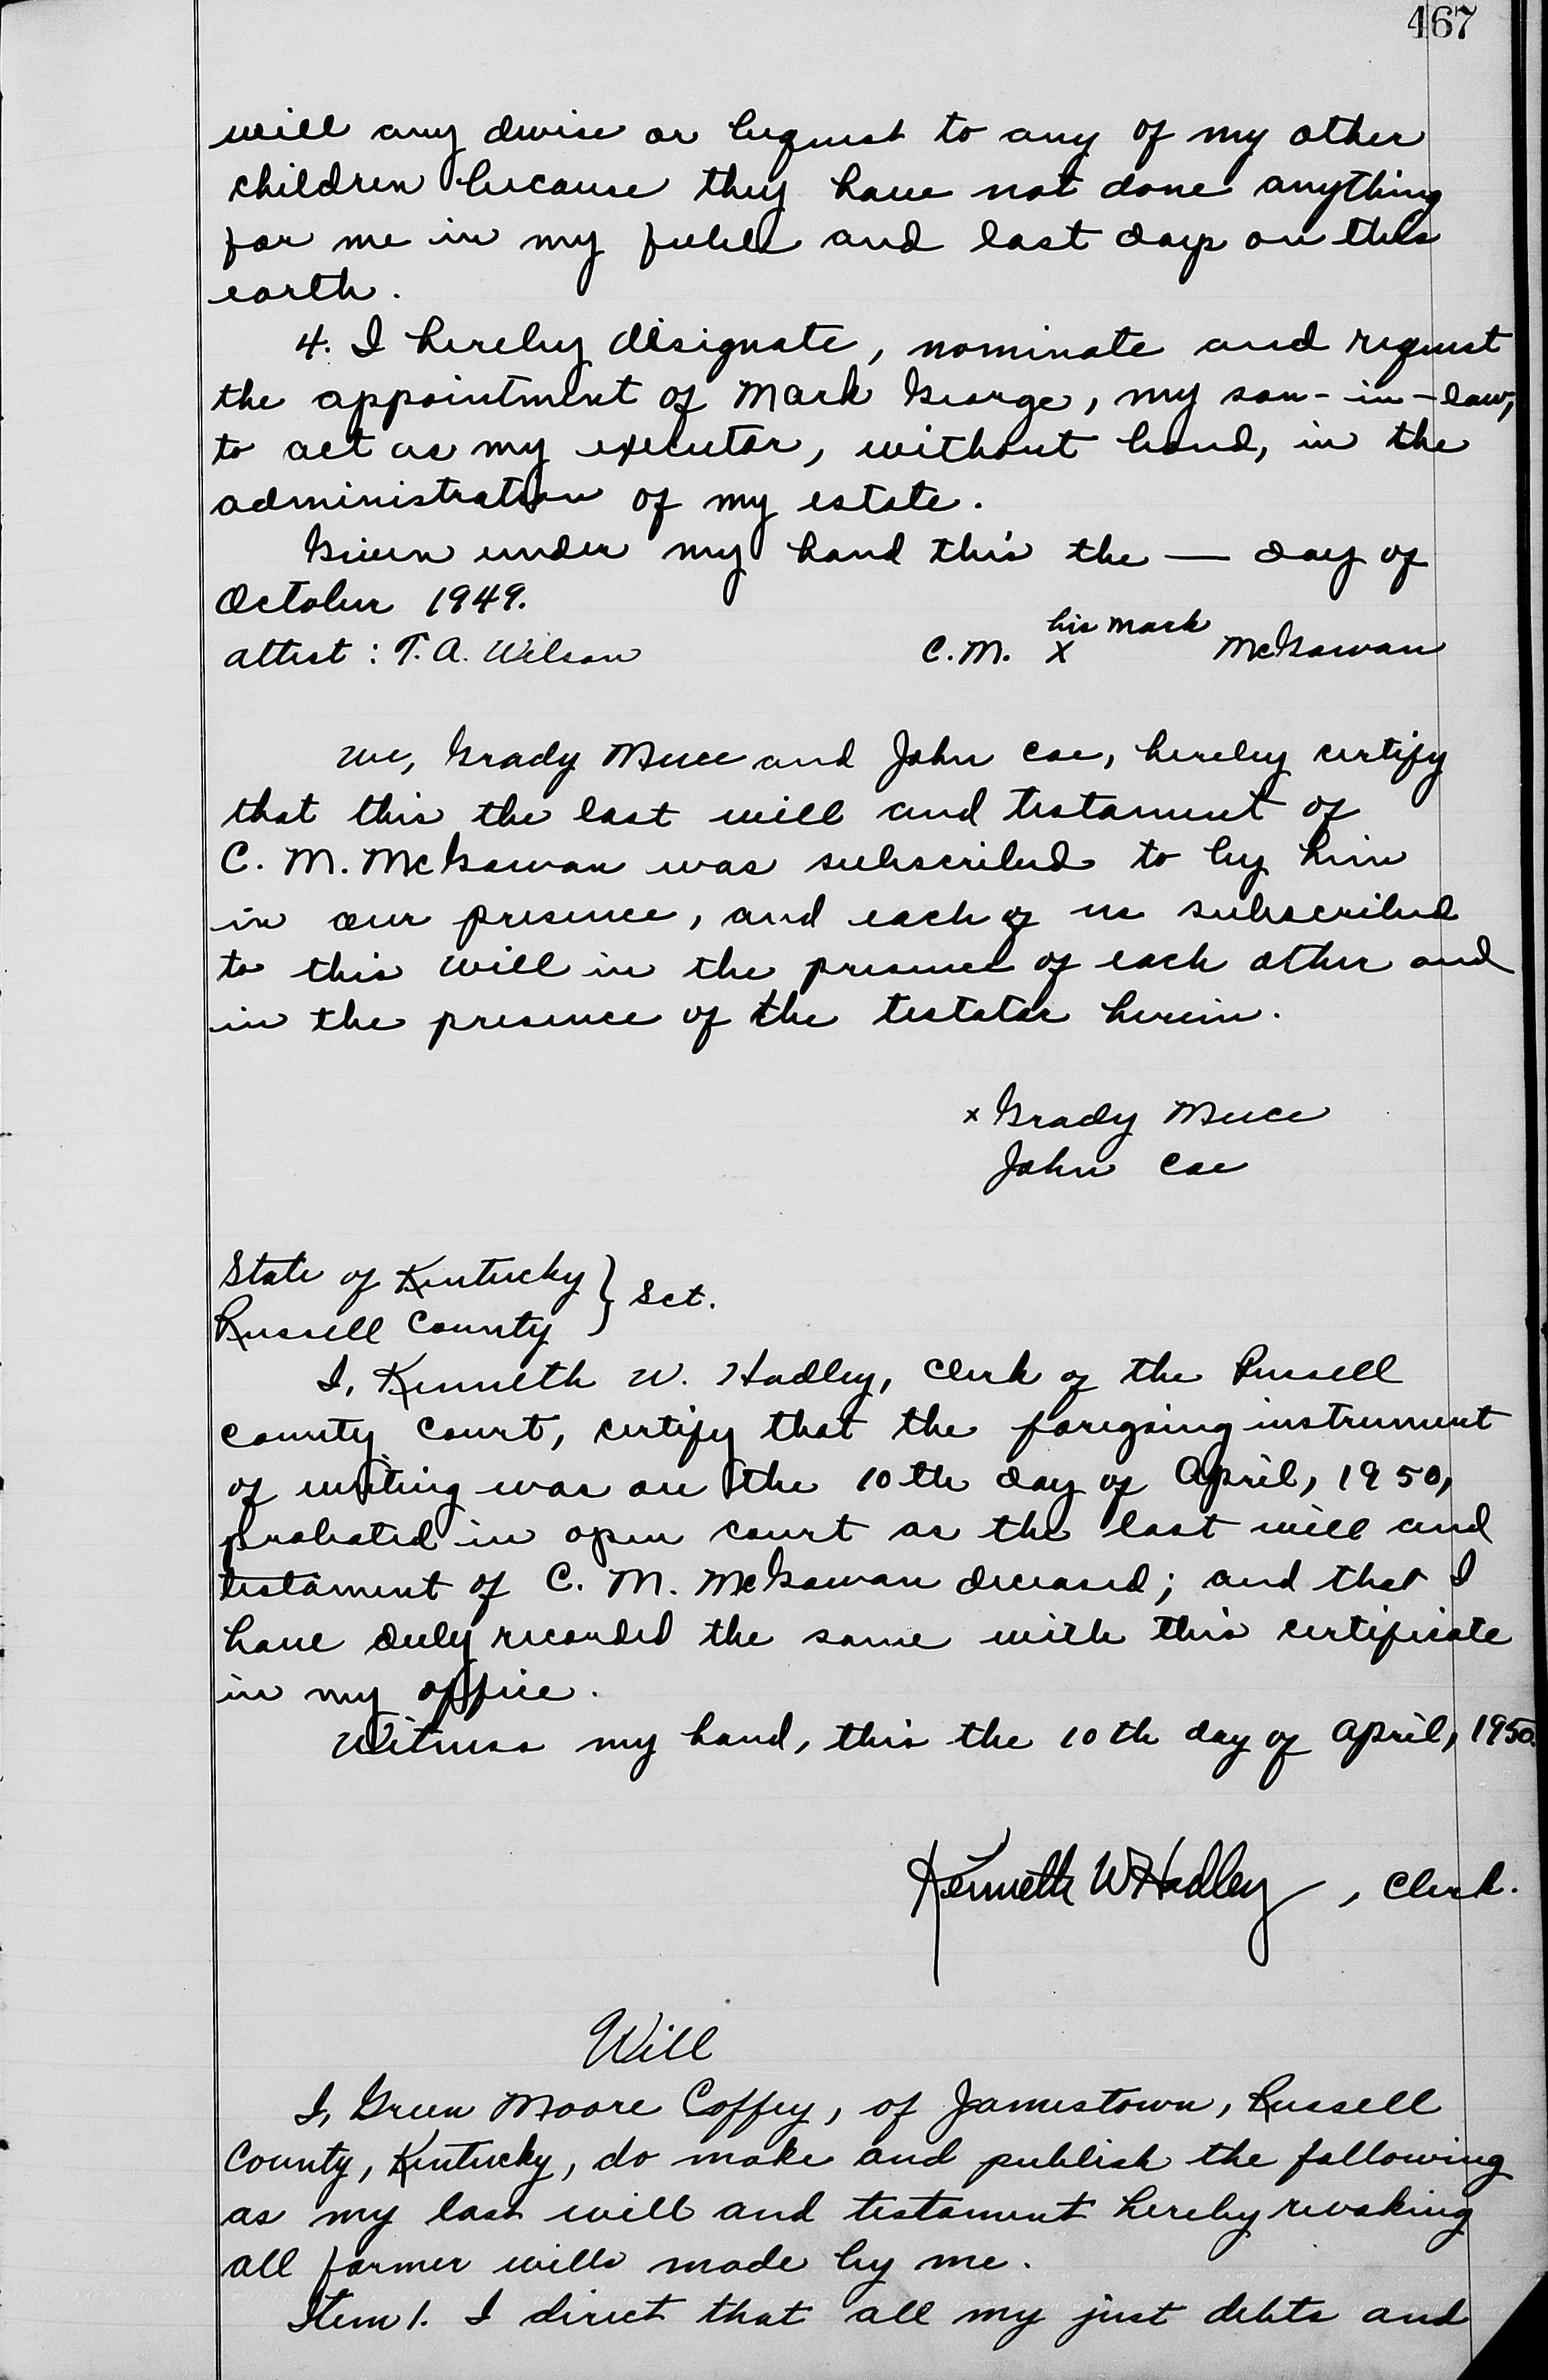 467
will any devise or bequest to any of my other
children because they have not done anything
for me in my feeble and last days on this
earth.
4. I hereby designate, nominate and request
the appointment of Mark George, my son-in-law,
to act as my executor, without bond, in the
administration of my estate.
Given under my hand this the — day of
October 1949.
his mark
attest: T. A. Wilson C. M. X McGowan
We, Grady Meece and John Coe, hereby certify
that this the last will and testament of
C. M. McGowan was subscribed to by him
in our presence, and each of us subscribed
to this will in the presence of each other and
in the presence of the testator herein.
x Grady Meece
John Coe
State of Kentucky } Sct.
Russell County
I, Kenneth W. Hadley, Clerk of the Russell
County Court, certify that the foregoing instrument
of writing was on the 10th day of April, 1950,
probated in open court as the last will and
testament of C. M. McGowan deceased; and that I
have duly recorded the same with this certificate
in my office.
Witness my hand, this the 10th day of April, 1950.
Kenneth W Hadley, Clerk.
Will
I, Green Moore Coffey, of Jamestown, Russell
County, Kentucky, do make and publish the following
as my last will and testament hereby revoking
all former wills made by me.
Item 1. I direct that all my just debts and